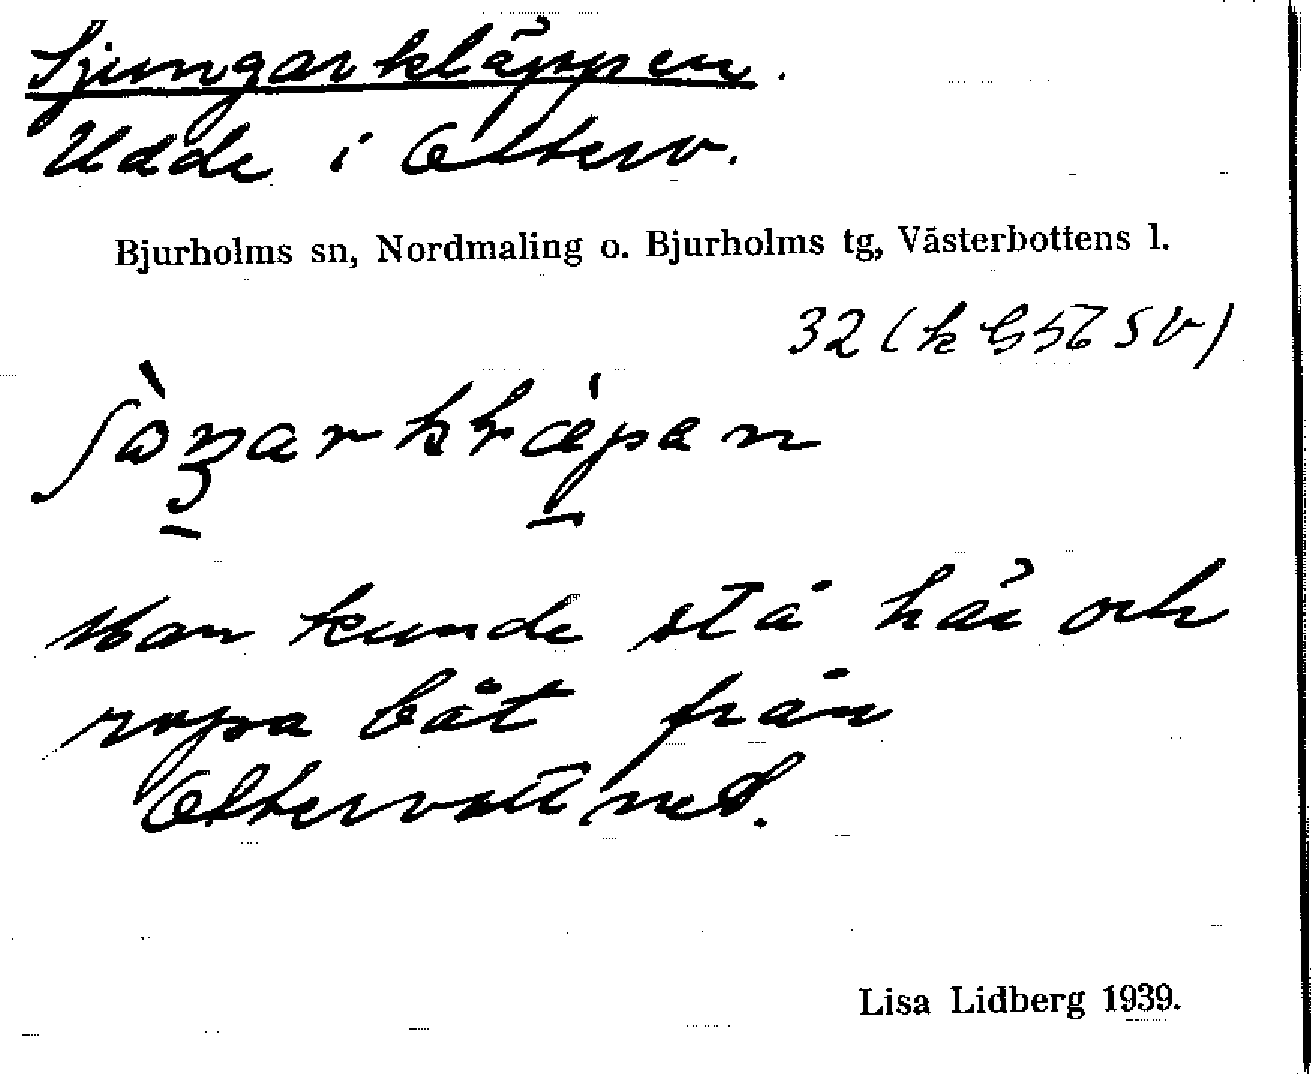 Sjungarkläppen.
Udde i Olterv.
Bjurholms sn, Nordmaling o. Bjurholms tg, Västerbottens l.
32 (k G56 SV)
Man kunde stå här och
ropa båt från
Oltervattnet.
Lisa Lidberg 1939.